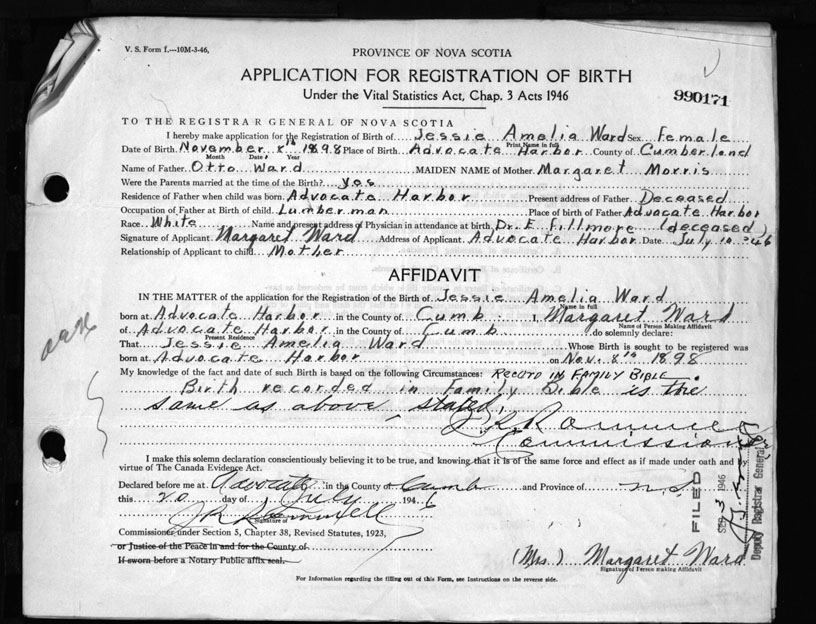 V. S. Form f.—10M-3-46.
PROVINCE OF NOVA SCOTIA
APPLICATION FOR REGISTRATION OF BIRTH
Under the Vital Statistics Act, Chap. 3 Acts 1946
990171
TO THE REGISTRAR GENERAL OF NOVA SCOTIA
I hereby make application for the Registration of Birth of Jessie Amelia Ward Sex Female
Print Name in full
Date of Birth November 8th 1898 Place of Birth Advocate Harbor County of Cumberland
Month Date Year
Name of Father Otto Ward MAIDEN NAME of Mother Margaret Morris
Were the Parents married at time of the Birth? yes
Residence of Father when child was born Advocate Harbor Present address of Father Deceased
Occupation of Father at Birth of child Lumberman Place of birth of Father Advocate Harbor
Race White Name and present address of Physician in attendance at birth Dr. E. Fillmore (deceased)
Signature of Applicant Margaret Ward Address of Applicant Advocate Harbor Date July 10 46
Relationship of Applicant to child Mother
AFFIDAVIT
IN THE MATTER of the application for the Registration of the Birth of Jessie Amelia Ward
Name in full
born at Advocate Harbor in the County of Cumb. I, Margaret Ward
Name of Person Making Affidavit
of Advocate Harbor in the County of Cumb do solemnly declare:
Present Residence
That Jessie Amelia Ward Whose Birth is sought to be registered was
born at Advocate Harbor on Nov. 8th 1898
My knowledge of the fact and date of such Birth is based on the following Circumstances: RECORD IN FAMILY BIBLE.
Birth recorded in Family Bible is the
same as above stated,
Commissioner
I make this solemn declaration conscientiously believing it to be true, and knowing that it is of the same force and effect as if made under oath and by
virtue of The Canada Evidence Act.
Declared before me at Advocate in the County of Cumb and Province of N.S.
this 20 day of July 1946
Signature of
Commissioner under Section 5, Chapter 38, Revised Statutes, 1923,
or Justice of the Peace in and for the County of
If sworn before a Notary Public affix seal.
(Mrs.) Margaret Ward
Signature of Person making Affidavit
For Information regarding the filling out of this Form, see Instructions on the reverse side.
FILED
SEP 3 1946
Deputy Registrar General